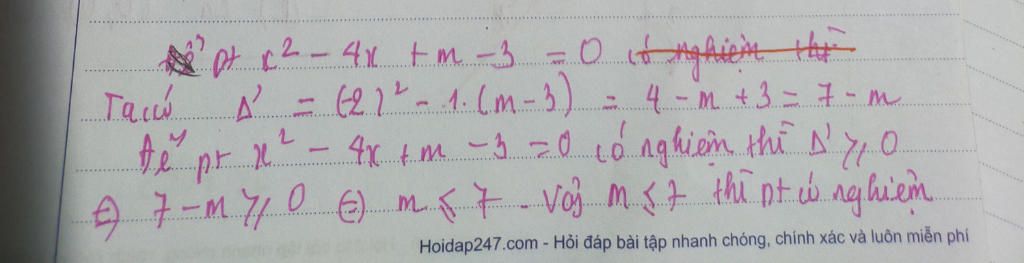 pt x² - 4x + m - 3 = 0 có nghiệm thì
Ta có Δ' = (-2)² - 1.(m-3) = 4 - m + 3 = 7 - m
Để pt x² - 4x + m - 3 = 0 có nghiệm thì Δ' ≥ 0
⇔ 7 - m ≥ 0 ⇔ m ≤ 7. Vậy m ≤ 7 thì pt có nghiệm
Hoidap247.com - Hỏi đáp bài tập nhanh chóng, chính xác và luôn miễn phí